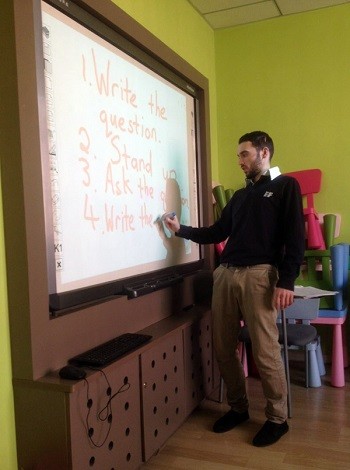 1. Write the
question.
2. Stand up
3. Ask the
4. Write the